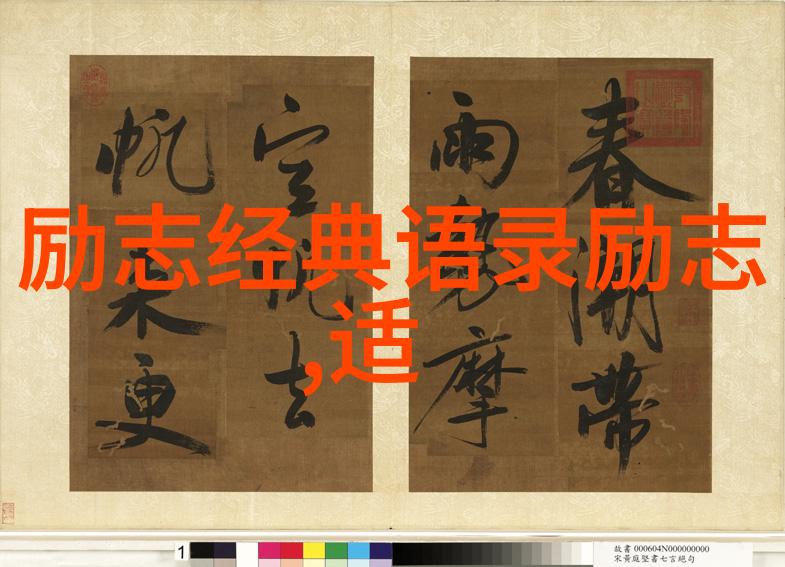 励志经典语录励志
,适
春潮帶
雨摩
空去
帆更
1
故書 000604N000000000
宋黃庭堅書七言絕句